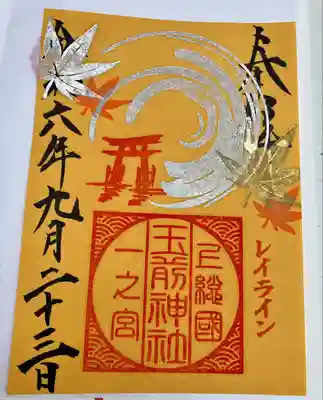 奉拝
レイライン
上総國
玉前神社
一之宮
六年九月二十三日